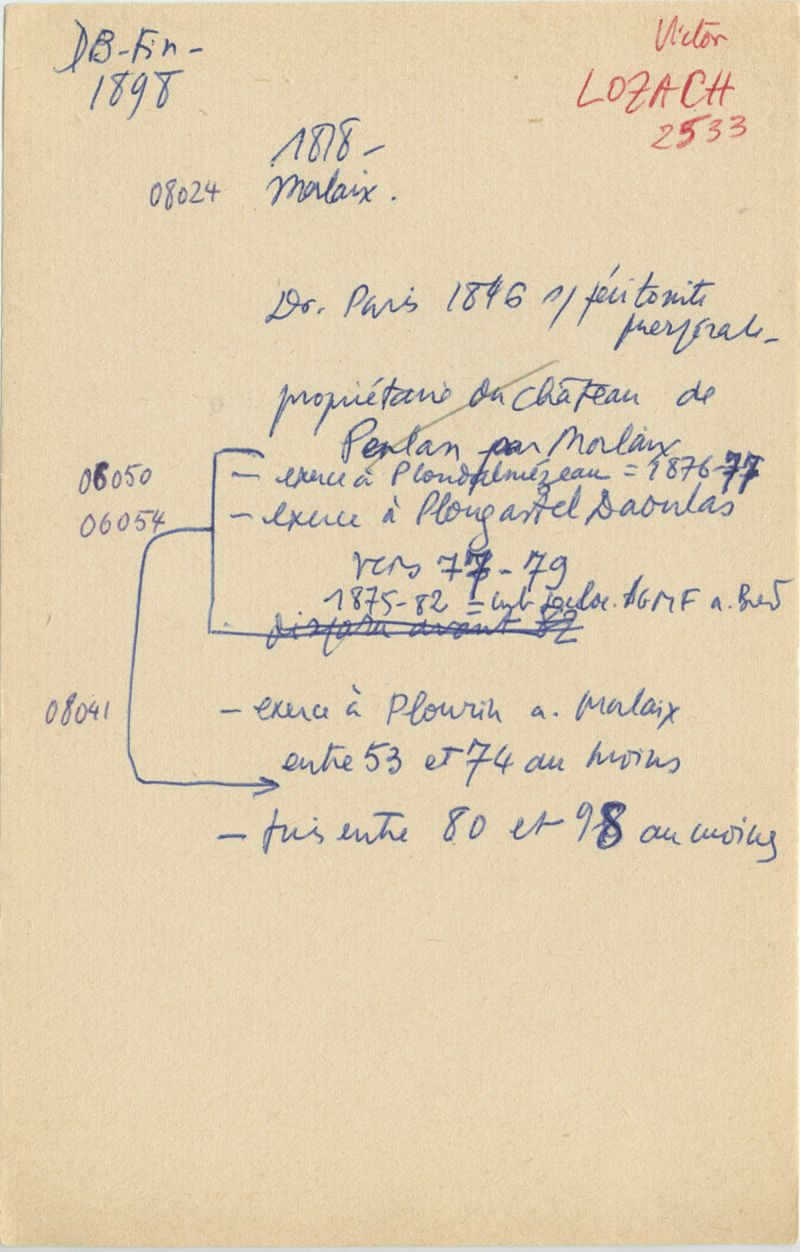 DB-Fin-
1898
Victor
LOZACH
2533
1818-
08024 Morlaix.
Dr. Paris 1846 s/ péritonite
puerpérale-
propriétaire du château de
Penlan par Morlaix
06050 - exerce à Ploudalmézeau = 1876-77
06054 - exerce à Plougastel Daoulas
vers 77-79
1875-82 = AGMF a. Brest
disparu avant 82
08041 - exerce à Plourin a. Morlaix
entre 53 et 74 au moins
- puis entre 80 et 98 au moins